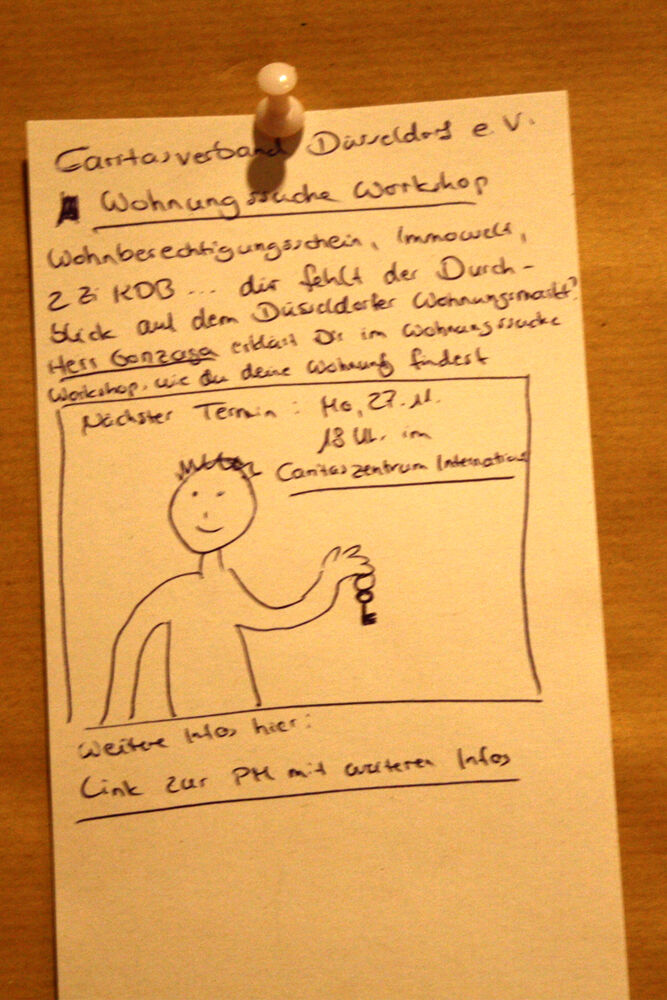 Caritasverband Düsseldorf e.V.
Wohnungssuche Workshop
Wohnberechtigungsschein, Immowelt,
2 Zi KDB ... dir fehlt der Durch-
blick auf dem Düsseldorfer Wohnungsmarkt?
Herr Gonzaga erklärt Dir im Wohnungssuche
Workshop, wie du deine Wohnung findest
Nächster Termin: Mo, 27.11.
18 Uh. im
Caritaszentrum International
Weitere Infos hier:
Link zur PM mit weiteren Infos